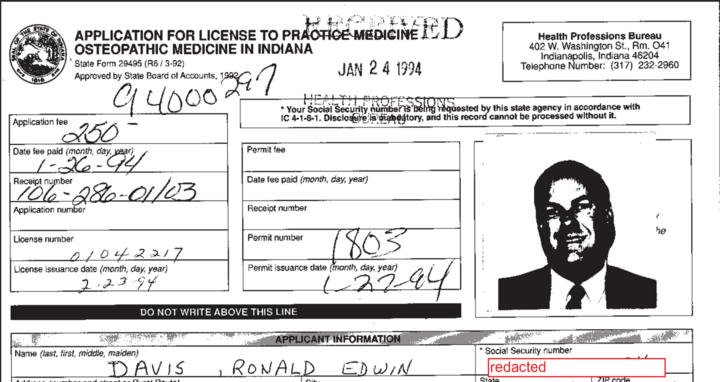 APPLICATION FOR LICENSE TO PRACTICE MEDICINE
OSTEOPATHIC MEDICINE IN INDIANA
State Form 29495 (R6 / 3-92)
Approved by State Board of Accounts, 1992
RECEIVED
JAN 24 1994
HEALTH PROFESSIONS
BUREAU
Health Professions Bureau
402 W. Washington St., Rm. O41
Indianapolis, Indiana 46204
Telephone Number: (317) 232-2960
94000297
* Your Social Security number is being requested by this state agency in accordance with
IC 4-1-8-1. Disclosure is mandatory, and this record cannot be processed without it.
Application fee
250-
Date fee paid (month, day, year)
1-26-94
Receipt number
106-286-01/03
Application number
License number
01042217
License issuance date (month, day, year)
2-23-94
Permit fee
Date fee paid (month, day, year)
Receipt number
Permit number
1803
Permit issuance date (month, day, year)
1-27-94
he
DO NOT WRITE ABOVE THIS LINE
APPLICANT INFORMATION
Name (last, first, middle, maiden)
DAVIS, RONALD EDWIN
* Social Security number
redacted
Address (number and street or Rural Route)
City
State
ZIP code